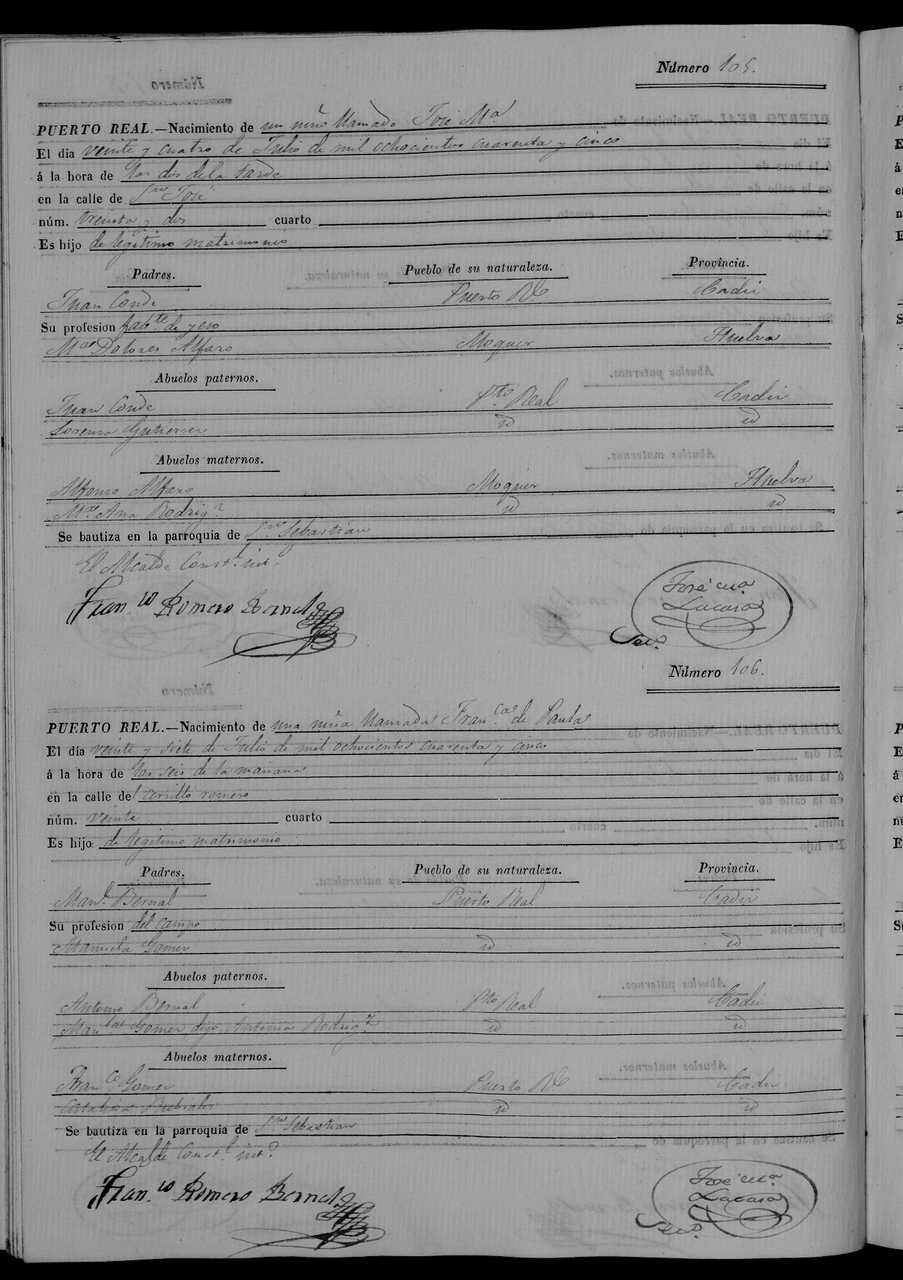 Número 105.
PUERTO REAL.—Nacimiento de un niño llamado José Mª
El dia veinte y cuatro de Julio de mil ochocientos cuarenta y cinco
á la hora de las dos de la tarde
en la calle de Sn José
núm. treinta y dos cuarto
Es hijo de legitimo matrimonio
Padres. Pueblo de su naturaleza. Provincia.
Juan Conde Puerto Rl Cadiz
Su profesion fabte de yeso
Mª Dolores Alfaro Moguer Huelva
Abuelos paternos.
Juan Conde Pto Real Cadiz
Lorenza Gutierrez id id
Abuelos maternos.
Alfonso Alfaro Moguer Huelva
Mª Ana Rodrigz id id
Se bautiza en la parroquia de Sn Sebastian
El Alcalde Constl. int.
Franco Romero Bernal
José Mª
Lacasa
Seco.
Número 106.
PUERTO REAL.—Nacimiento de una niña llamada Franca de Paula
El dia veinte y siete de Julio de mil ochocientos cuarenta y cinco
á la hora de las seis de la mañana
en la calle del cerrillo romero
núm. veinte cuarto
Es hijo de legitimo matrimonio
Padres. Pueblo de su naturaleza. Provincia.
Manl. Bernal Puerto Real Cadiz
Su profesion del campo
Manuela Gomez id id
Abuelos paternos.
Antonio Bernal Pto Real Cadiz
Manla Gomez digo Antonia Rodrigz id id
Abuelos maternos.
Franco Gomez Puerto Rl Cadiz
Catalina id id
Se bautiza en la parroquia de Sn Sebastian
El Alcalde Constl. int.
Franco Romero Bernal
José Mª
Lacasa
Seco.